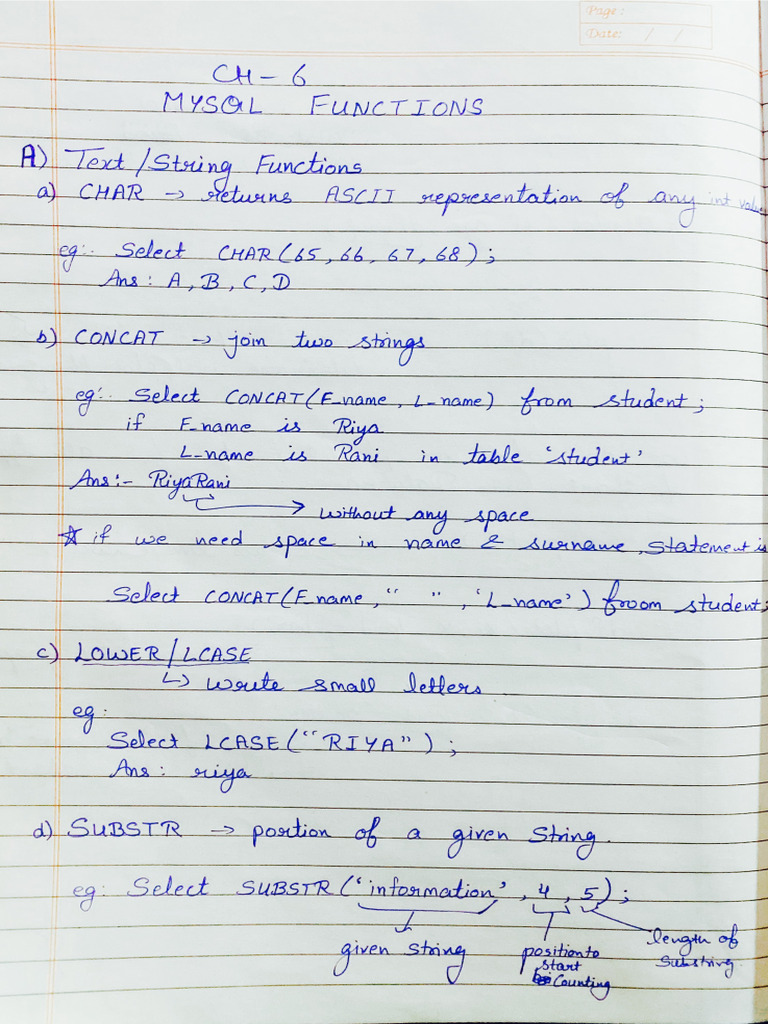 Page :
Date: / /
CH - 6
MYSQL FUNCTIONS
A) Text/String Functions
a) CHAR → returns ASCII representation of any int value
eg:. Select CHAR(65, 66, 67, 68);
Ans : A, B, C, D
b) CONCAT → join two strings
eg:. Select CONCAT(F_name, L_name) from student;
if F_name is Riya
L_name is Rani in table 'student'
Ans :- RiyaRani
→ without any space
☆ if we need space in name & surname, statement is
Select CONCAT(F_name, " ", 'L_name') froom student;
c) LOWER/LCASE
↳ write small letters
eg:
Select LCASE("RIYA");
Ans : riya
d) SUBSTR → portion of a given String.
eg: Select SUBSTR('information', 4, 5);
given string
position to
start
Counting
length of
substring.